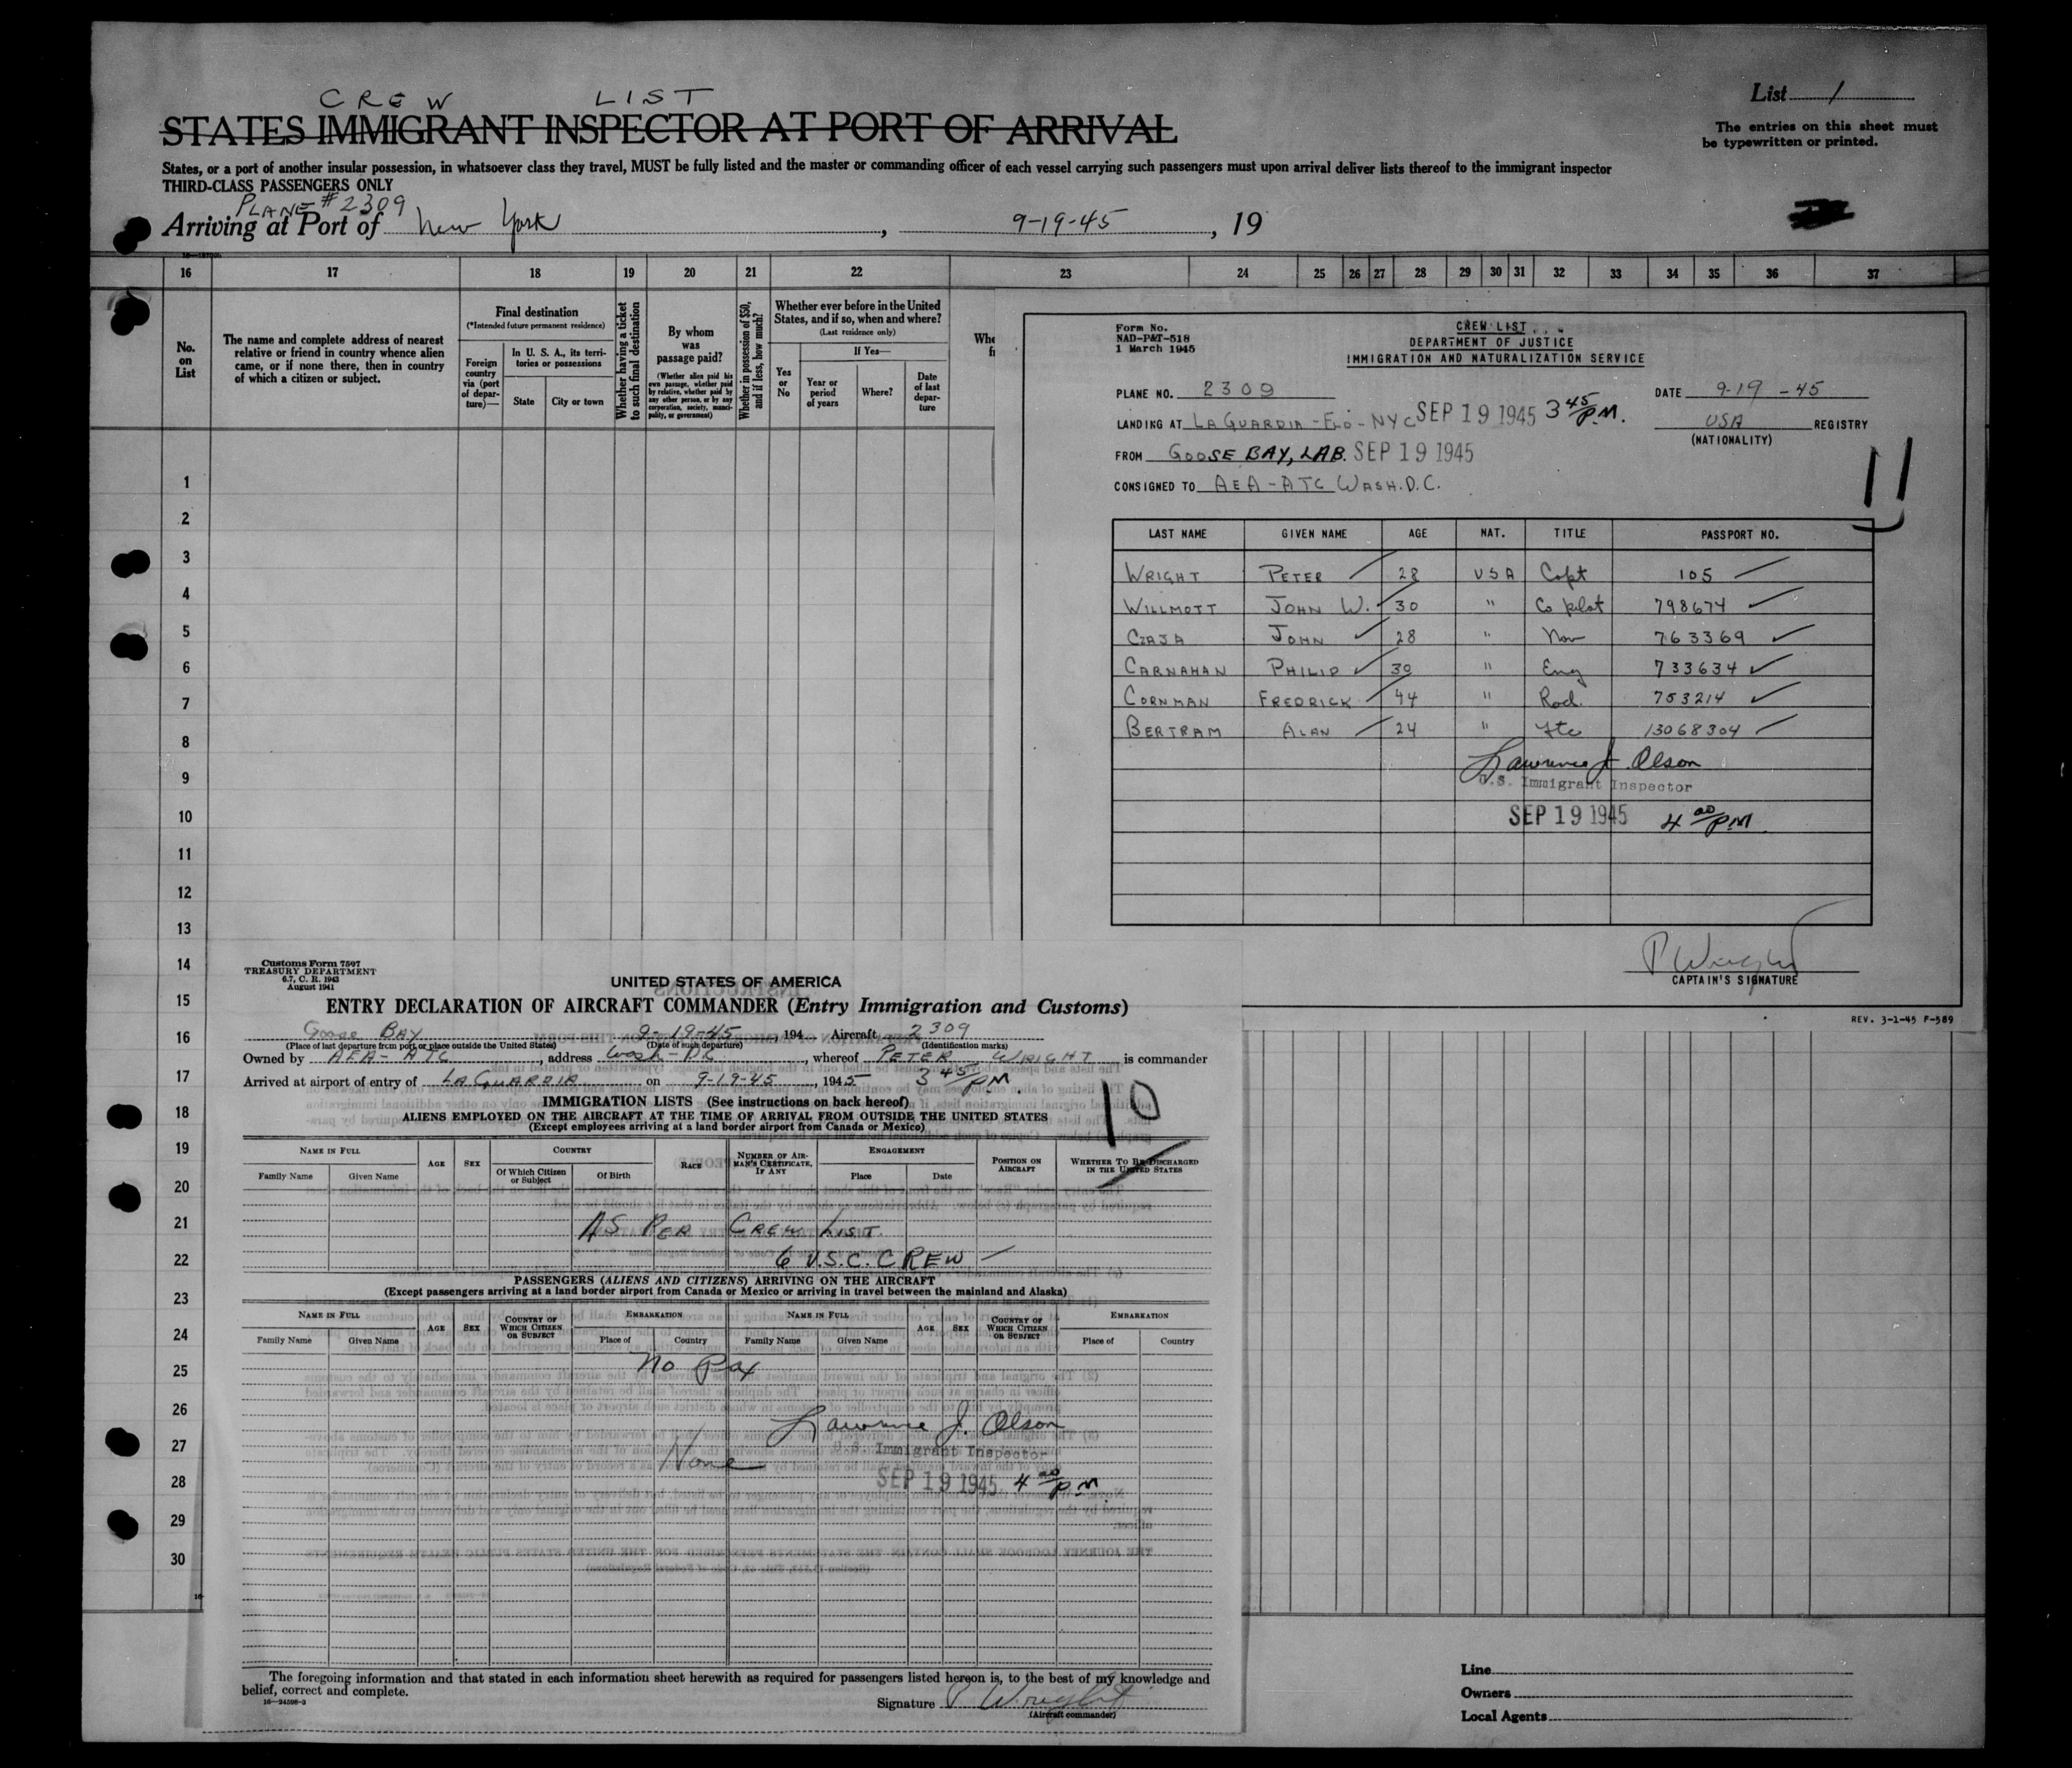 CREW LIST
STATES IMMIGRANT INSPECTOR AT PORT OF ARRIVAL
List 1
The entries on this sheet must
be typewritten or printed.
States, or a port of another insular possession, in whatsoever class they travel, MUST be fully listed and the master or commanding officer of each vessel carrying such passengers must upon arrival deliver lists thereof to the immigrant inspector
THIRD-CLASS PASSENGERS ONLY
PLANE #2309
Arriving at Port of New York, 9-19-45, 19
16 17 18 19 20 21 22 23 24 25 26 27 28 29 30 31 32 33 34 35 36 37
No.
on
List
The name and complete address of nearest
relative or friend in country whence alien
came, or if none there, then in country
of which a citizen or subject.
Final destination
(*Intended future permanent residence)
Foreign
country
via (port
of depar-
ture)—
In U. S. A., its terri-
tories or possessions
State
City or town
Whether having a ticket
to such final destination
By whom
was
passage paid?
(Whether alien paid his
own passage, whether paid
by relative, whether paid by
any other person, or by any
corporation, society, munici-
pality, or government)
Whether in possession of $50,
and if less, how much?
Whether ever before in the United
States, and if so, when and where?
(Last residence only)
Yes
or
No
If Yes—
Year or
period
of years
Where?
Date
of last
depar-
ture
1
2
3
4
5
6
7
8
9
10
11
12
13
14
15
16
17
18
19
20
21
22
23
24
25
26
27
28
29
30
Form No.
NAD-P&T-518
1 March 1945
CREW LIST
DEPARTMENT OF JUSTICE
IMMIGRATION AND NATURALIZATION SERVICE
PLANE NO. 2309 DATE 9-19-45
LANDING AT LA GUARDIA-FLD-NYC SEP 19 1945 3 45 P.M. USA REGISTRY
(NATIONALITY)
FROM GOOSE BAY, LAB. SEP 19 1945
CONSIGNED TO AEA-ATC WASH.D.C.
11
LAST NAME GIVEN NAME AGE NAT. TITLE PASSPORT NO.
WRIGHT PETER 28 USA Capt 105
WILLMOTT JOHN W. 30 " Co pilot 798674
CZAJA JOHN 28 " Nav 763369
CARNAHAN PHILIP 30 " Eng 733634
CORNMAN FREDRICK 44 " Rad. 753214
BERTRAM ALAN 24 " 13068304
Lawrence J. Olson
U.S. Immigrant Inspector
SEP 19 1945 4 00 PM
P Wright
CAPTAIN'S SIGNATURE
REV. 3-1-45 F-589
Customs Form 7507
TREASURY DEPARTMENT
6.7, C. R. 1943
August 1941
UNITED STATES OF AMERICA
ENTRY DECLARATION OF AIRCRAFT COMMANDER (Entry Immigration and Customs)
Goose Bay 9-19-45, 194 Aircraft 2309
(Place of last departure from port or place outside the United States) (Date of such departure) (Identification marks)
Owned by AEA-ATC, address Wash-DC, whereof PETER WRIGHT is commander
Arrived at airport of entry of LA GUARDIA on 9-19-45, 1945 3 45 PM
10
IMMIGRATION LISTS (See instructions on back hereof)
ALIENS EMPLOYED ON THE AIRCRAFT AT THE TIME OF ARRIVAL FROM OUTSIDE THE UNITED STATES
(Except employees arriving at a land border airport from Canada or Mexico)
NAME IN FULL AGE SEX COUNTRY RACE NUMBER OF AIR-MAN'S CERTIFICATE, IF ANY ENGAGEMENT POSITION ON AIRCRAFT WHETHER TO BE DISCHARGED IN THE UNITED STATES
Family Name Given Name Of Which Citizen or Subject Of Birth Place Date
AS PER CREW LIST.
6 U.S.C. CREW —
PASSENGERS (ALIENS AND CITIZENS) ARRIVING ON THE AIRCRAFT
(Except passengers arriving at a land border airport from Canada or Mexico or arriving in travel between the mainland and Alaska)
NAME IN FULL AGE SEX COUNTRY OF WHICH CITIZEN OR SUBJECT EMBARKATION NAME IN FULL AGE SEX COUNTRY OF WHICH CITIZEN OR SUBJECT EMBARKATION
Family Name Given Name Place of Country Family Name Given Name Place of Country
No Pax
Lawrence J. Olson
U.S. Immigrant Inspector
None
SEP 19 1945 4 00 P.M.
The foregoing information and that stated in each information sheet herewith as required for passengers listed hereon is, to the best of my knowledge and
belief, correct and complete.
16—24598-3
Signature P Wright
(Aircraft commander)
Line
Owners
Local Agents